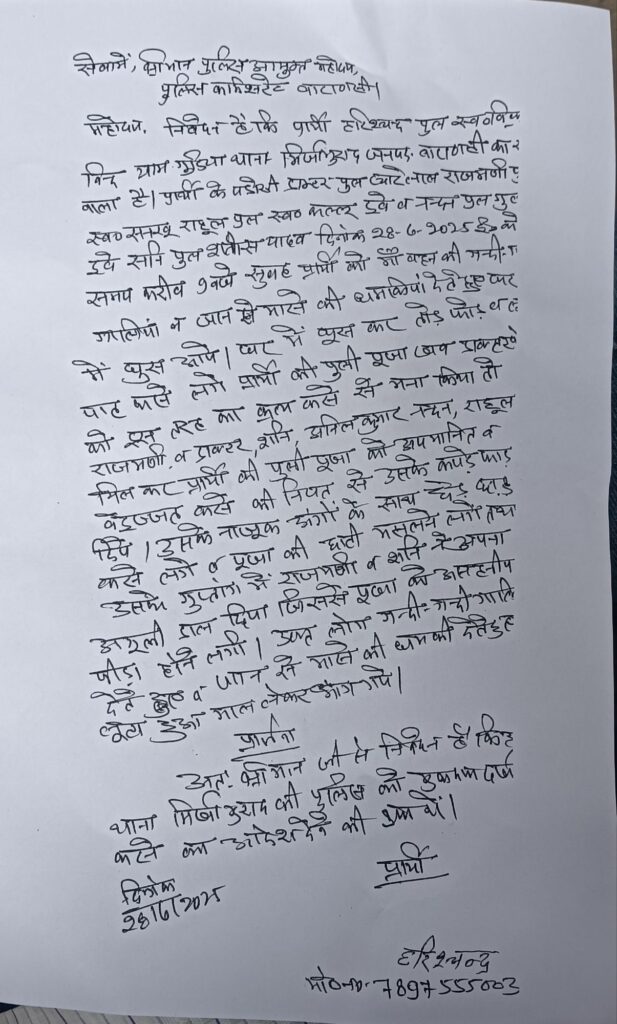 सेवामें, श्रीमान पुलिस आयुक्त महोदय,
पुलिस कमिश्नरेट वाराणसी।
महोदय, निवेदन है कि प्रार्थी हरिश्चन्द्र पुत्र स्व०
बिन्द ग्राम थाना मिर्जामुराद जनपद- वाराणसी का र
वाला है। प्रार्थी के पड़ोसी डाक्टर पुत्र छोटेलाल राजमणी पु
स्व० राहुल पुत्र स्व० कल्लू दुबे व नन्दन पुत्र
दुबे सनि पुत्र यादव दिनांक 28-6-2025 ई० को
समय करीब 9 बजे सुबह प्रार्थी को माँ बहन की गन्दी-ग
गालियां व जान से मारने की धमकियां देते हुए घर
में घुस आये। घर में घुस कर तोड़ फोड़ व
पाट करने लगे प्रार्थी की पुत्री पूजा जब
को इस तरह का कृत्य करने से मना किया तो
राजमणी व डाक्टर, शनि, अनिल कुमार नन्दन, राहुल
मिल कर प्रार्थी की पुत्री पूजा को अपमानित व
बेइज्जत करने की नियत से उसके कपड़े फाड़
दिये। उसके नाजुक अंगों के साथ छेड़ छाड़
करने लगे व पूजा की छाती मसलने लगे तथा
उसके गुप्तांग में राजमणी व शनि ने अपना
अंगुली डाल दिया जिससे पूजा को असहनीय
पीड़ा होने लगी। उक्त लोग गन्दी-गन्दी गालि
देते हुए व जान से मारने की धमकी देते हुए
लूटा हुआ माल लेकर भाग गये।
प्रार्थना
अतः श्रीमान जी से निवेदन है कि
थाना मिर्जामुराद की पुलिस को मुकदमा दर्ज
करने का आदेश देने की कृपा करें।
प्रार्थी
दिनांक
28/6/2025
हरिश्चन्द्र
मो०नं०- 7897555003